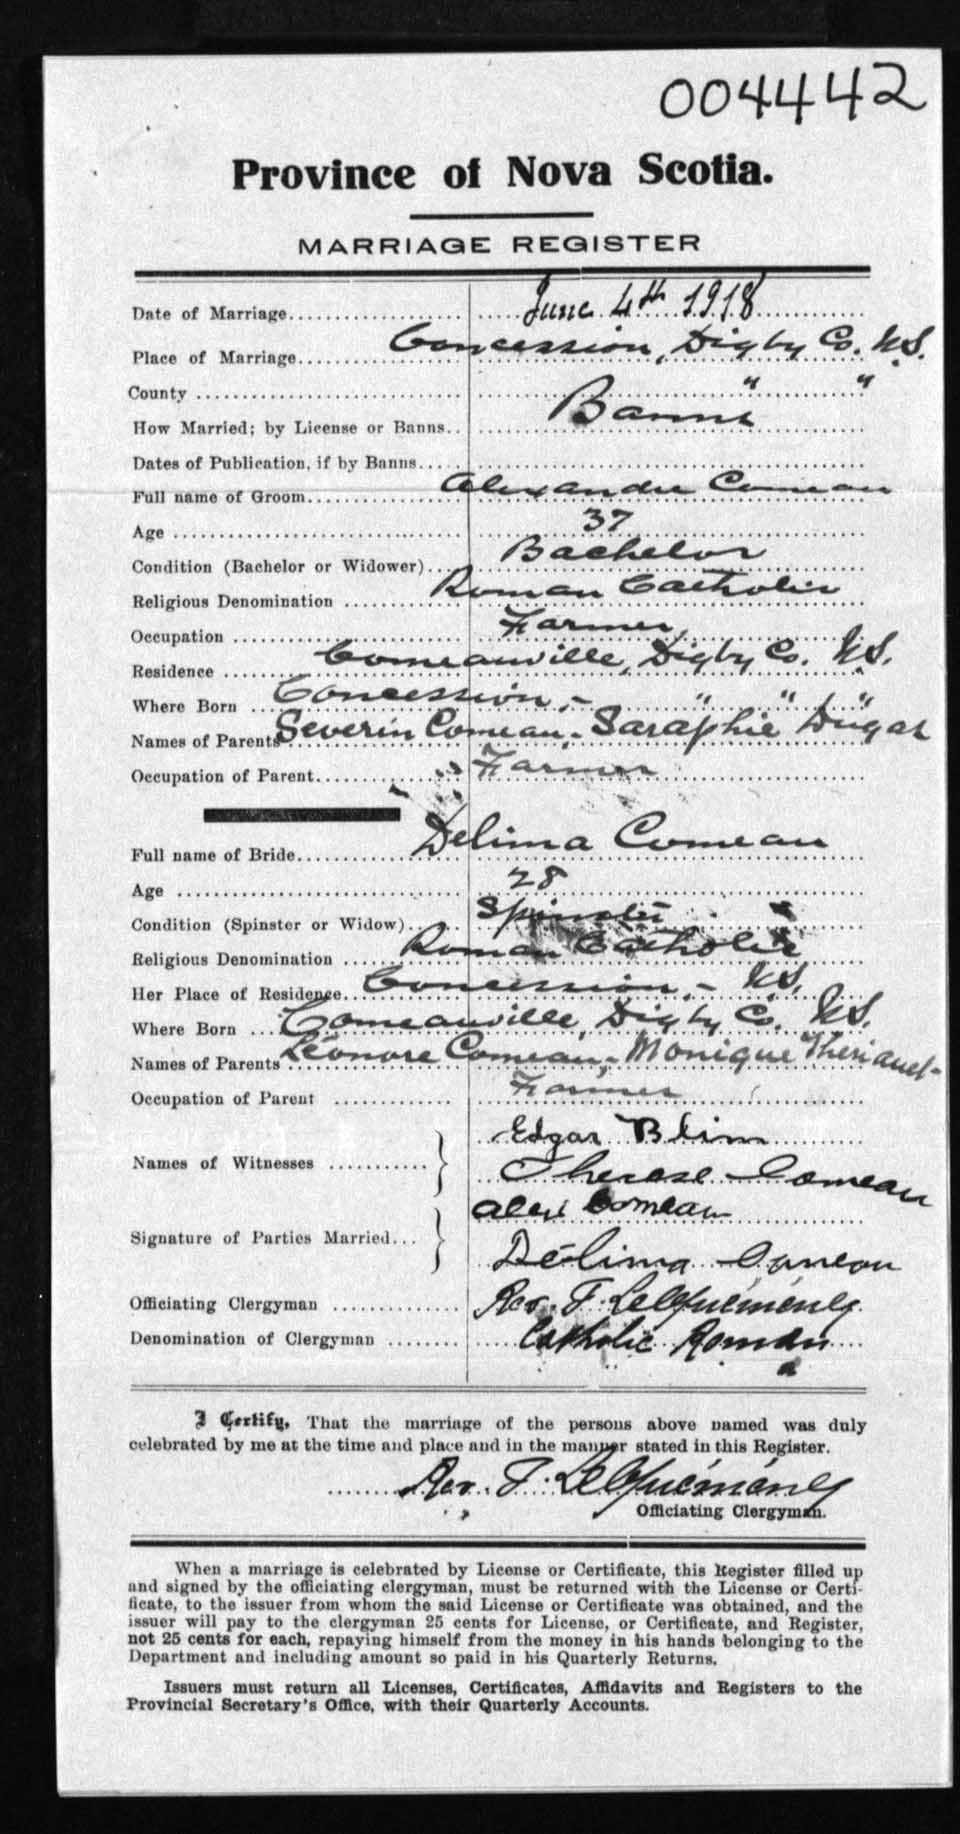 004442
Province of Nova Scotia.
MARRIAGE REGISTER
Date of Marriage.................... June 4th 1918
Place of Marriage.................... Concession, Digby Co. N.S.
County .................... " "
How Married; by License or Banns.. Banns
Dates of Publication, if by Banns....
Full name of Groom.................... Alexandre Comeau
Age .................... 37
Condition (Bachelor or Widower).... Bachelor
Religious Denomination .................... Roman Catholic
Occupation .................... Farmer
Residence .................... Comeauville, Digby Co. N.S.
Where Born .... Concession, - " " "
Names of Parents Severin Comeau, - Saraphie Dugas
Occupation of Parent.................... " Farmer
Full name of Bride.................... Delima Comeau
Age .................... 28
Condition (Spinster or Widow).... Spinster
Religious Denomination .................... Roman Catholic
Her Place of Residence.................... Concession, - N.S.
Where Born .... Comeauville, Digby Co. N.S.
Names of Parents Léonore Comeau, - Monique Theriault
Occupation of Parent .................... Farmer
Edgar Blinn
Names of Witnesses .................... } Therese Comeau
Alex Comeau
Signature of Parties Married... } Délima Comeau
Officiating Clergyman .................... Rev. F. LeQuéméner
Denomination of Clergyman .......... Catholic Roman
I Certify, That the marriage of the persons above named was duly
celebrated by me at the time and place and in the manner stated in this Register.
Rev. F. LeQuéméner
Officiating Clergyman.
When a marriage is celebrated by License or Certificate, this Register filled up
and signed by the officiating clergyman, must be returned with the License or Certi-
ficate, to the issuer from whom the said License or Certificate was obtained, and the
issuer will pay to the clergyman 25 cents for License, or Certificate, and Register,
not 25 cents for each, repaying himself from the money in his hands belonging to the
Department and including amount so paid in his Quarterly Returns.
Issuers must return all Licenses, Certificates, Affidavits and Registers to the
Provincial Secretary's Office, with their Quarterly Accounts.